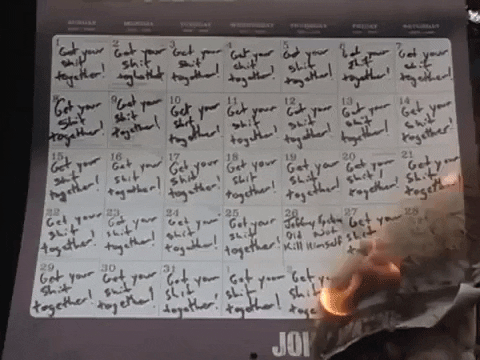 SUNDAY MONDAY TUESDAY WEDNESDAY THURSDAY FRIDAY SATURDAY
1
Get your
shit
together!
2
Get your
shit
together!
3
Get your
shit
together!
4
Get your
shit
together!
5
Get your
shit
together!
6
Get your
shit
together!
7
Get your
shit
together!
8
Get your
shit
together!
9
Get your
shit
together!
10
Get your
shit
together!
11
Get your
shit
together!
12
Get your
shit
together!
13
Get your
shit
together!
14
Get your
shit
together!
15
Get your
shit
together!
16
Get your
shit
together!
17
Get your
shit
together!
18
Get your
shit
together!
19
Get your
shit
together!
20
Get your
shit
together!
21
Get your
shit
together!
22
Get your
shit
together!
23
Get your
shit
together!
24
Get your
shit
together!
25
Get your
shit
together!
26
Did Not
Kill Himself
27
Get your
shit
28
29
Get your
shit
together!
30
Get your
shit
together!
31
Get your
shit
together!
1
Get your
shit
together!
2
Get your
shit
toge
JOI